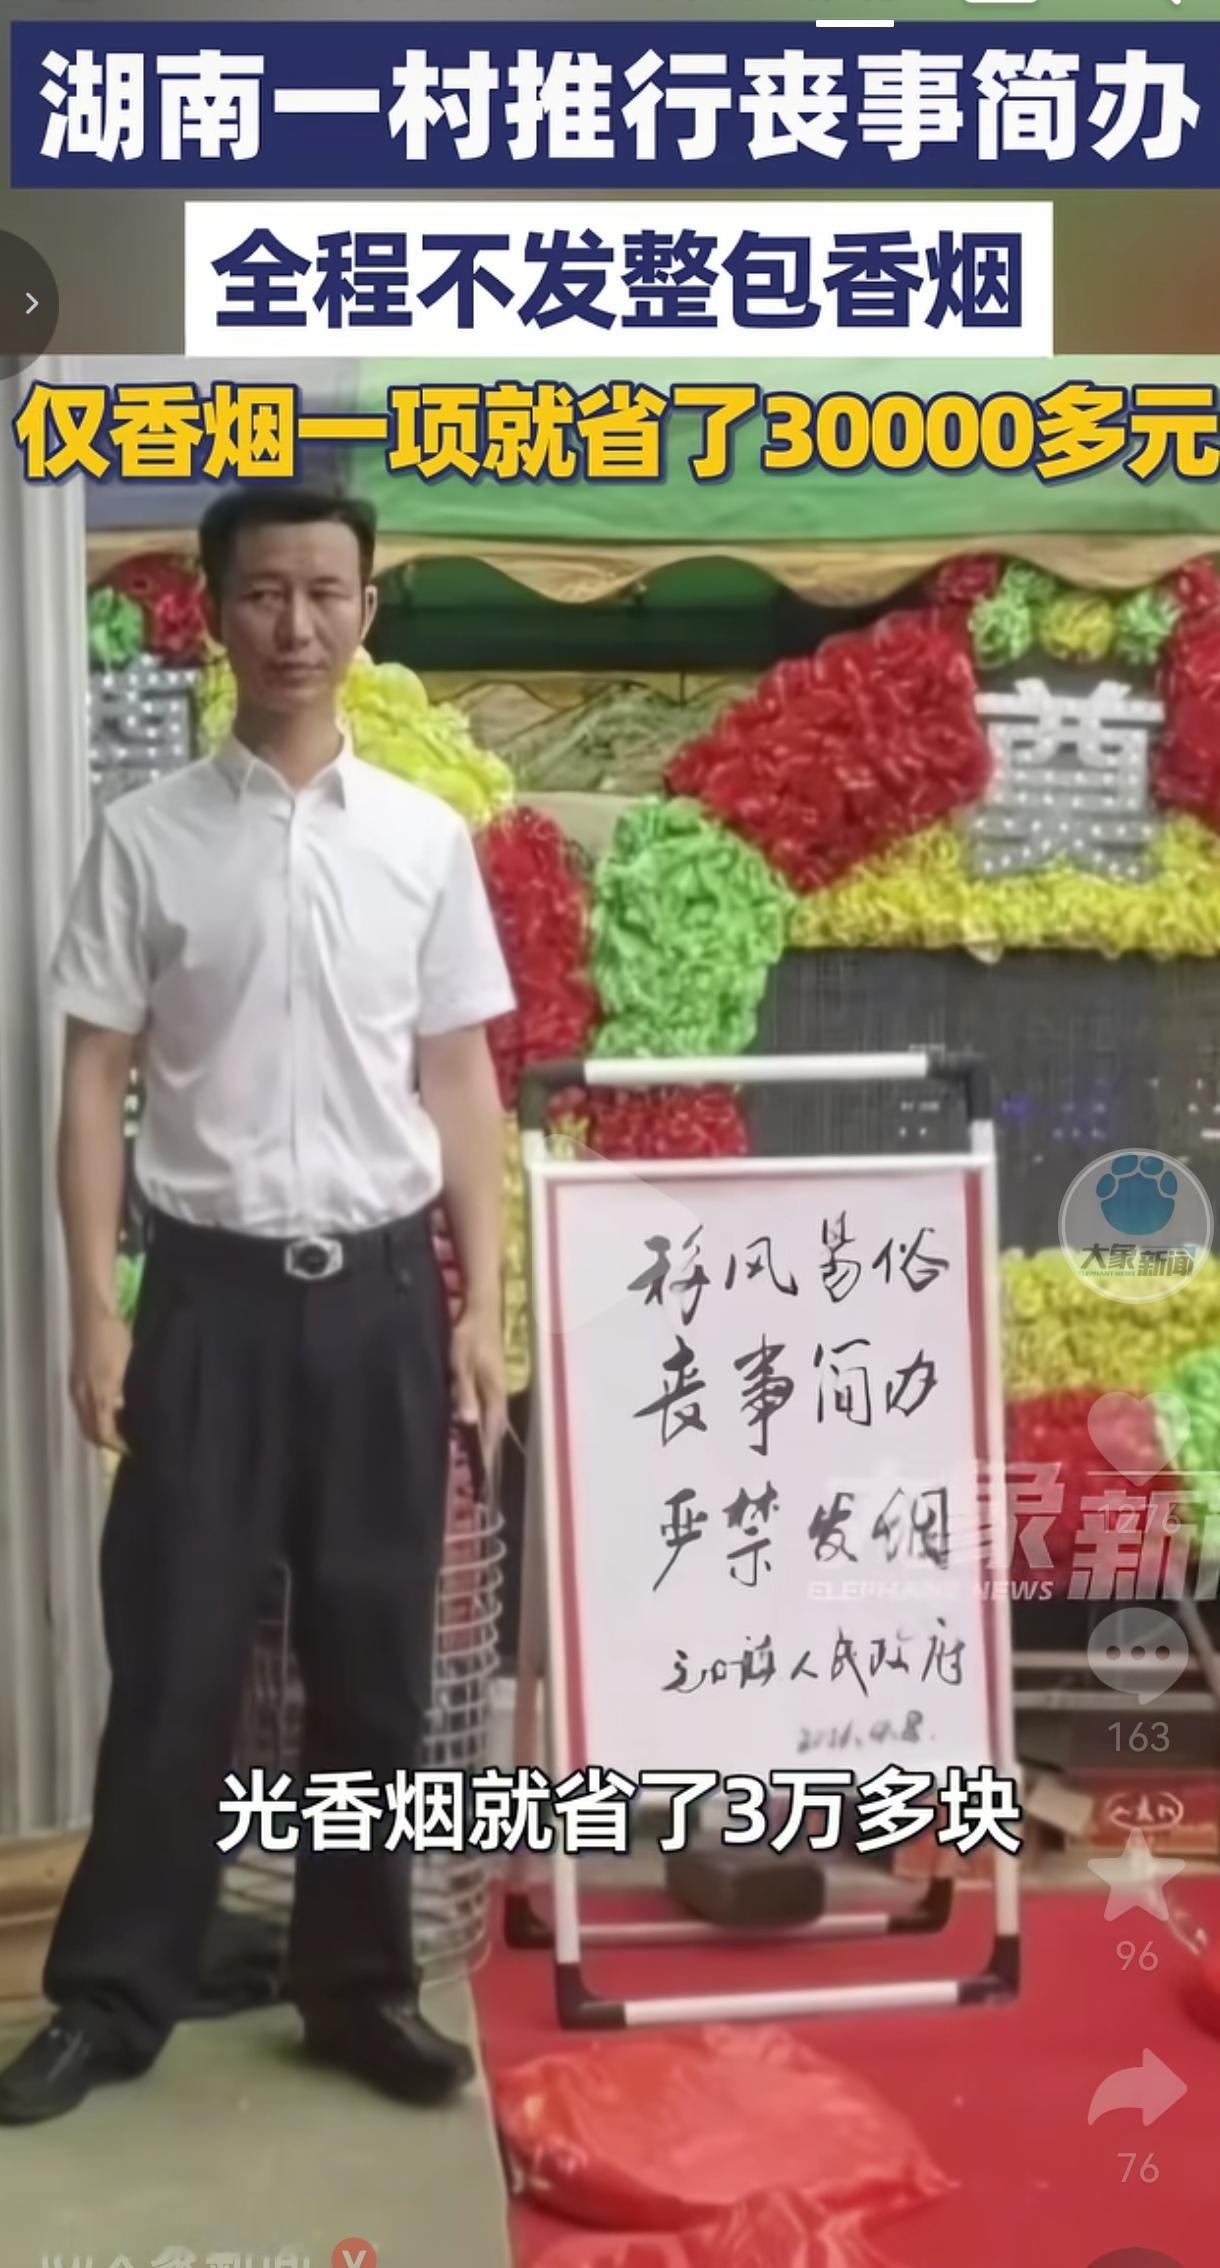 湖南一村推行丧事简办
全程不发整包香烟
仅香烟一项就省了30000多元
大象新闻
ELEPHANT NEWS
移风易俗
丧事简办
严禁发烟
人民政府
ELEPHANT NEWS
光香烟就省了3万多块
1276
163
96
76